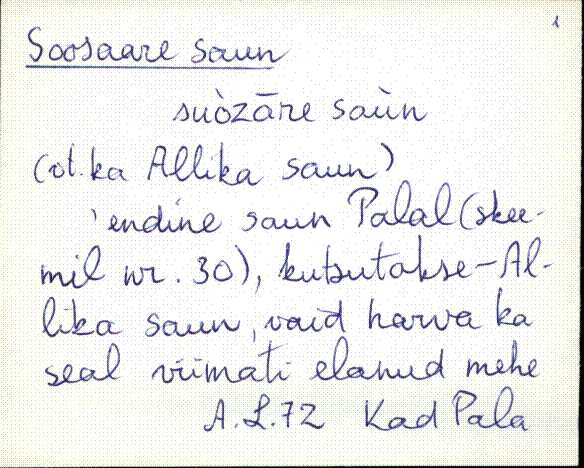 1
Soosaare saun
suòzāre saùn
(vt. ka Allika saun)
'endine saun Palal (skee-
mil nr. 30), kutsutakse - Al-
lika saun, vaid harva ka
seal viimati elanud mehe
A.L.72 Kad Pala